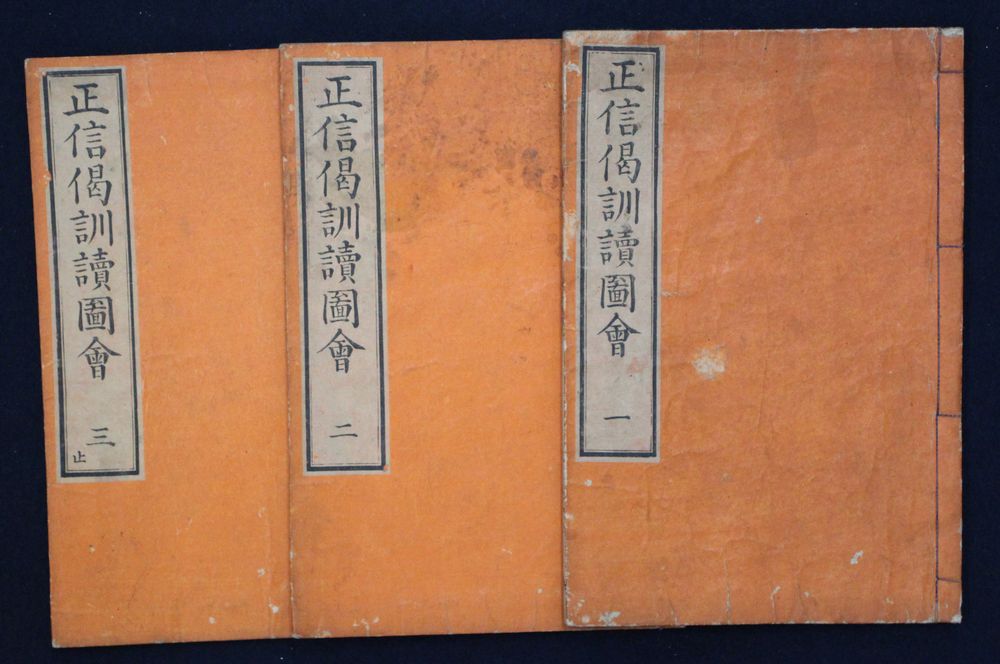 正信偈訓讀圖會 一
正信偈訓讀圖會 二
正信偈訓讀圖會 三止